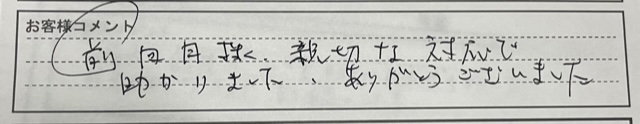 お客様コメント
前回同様、親切な対応で
助かりました、ありがとうございました